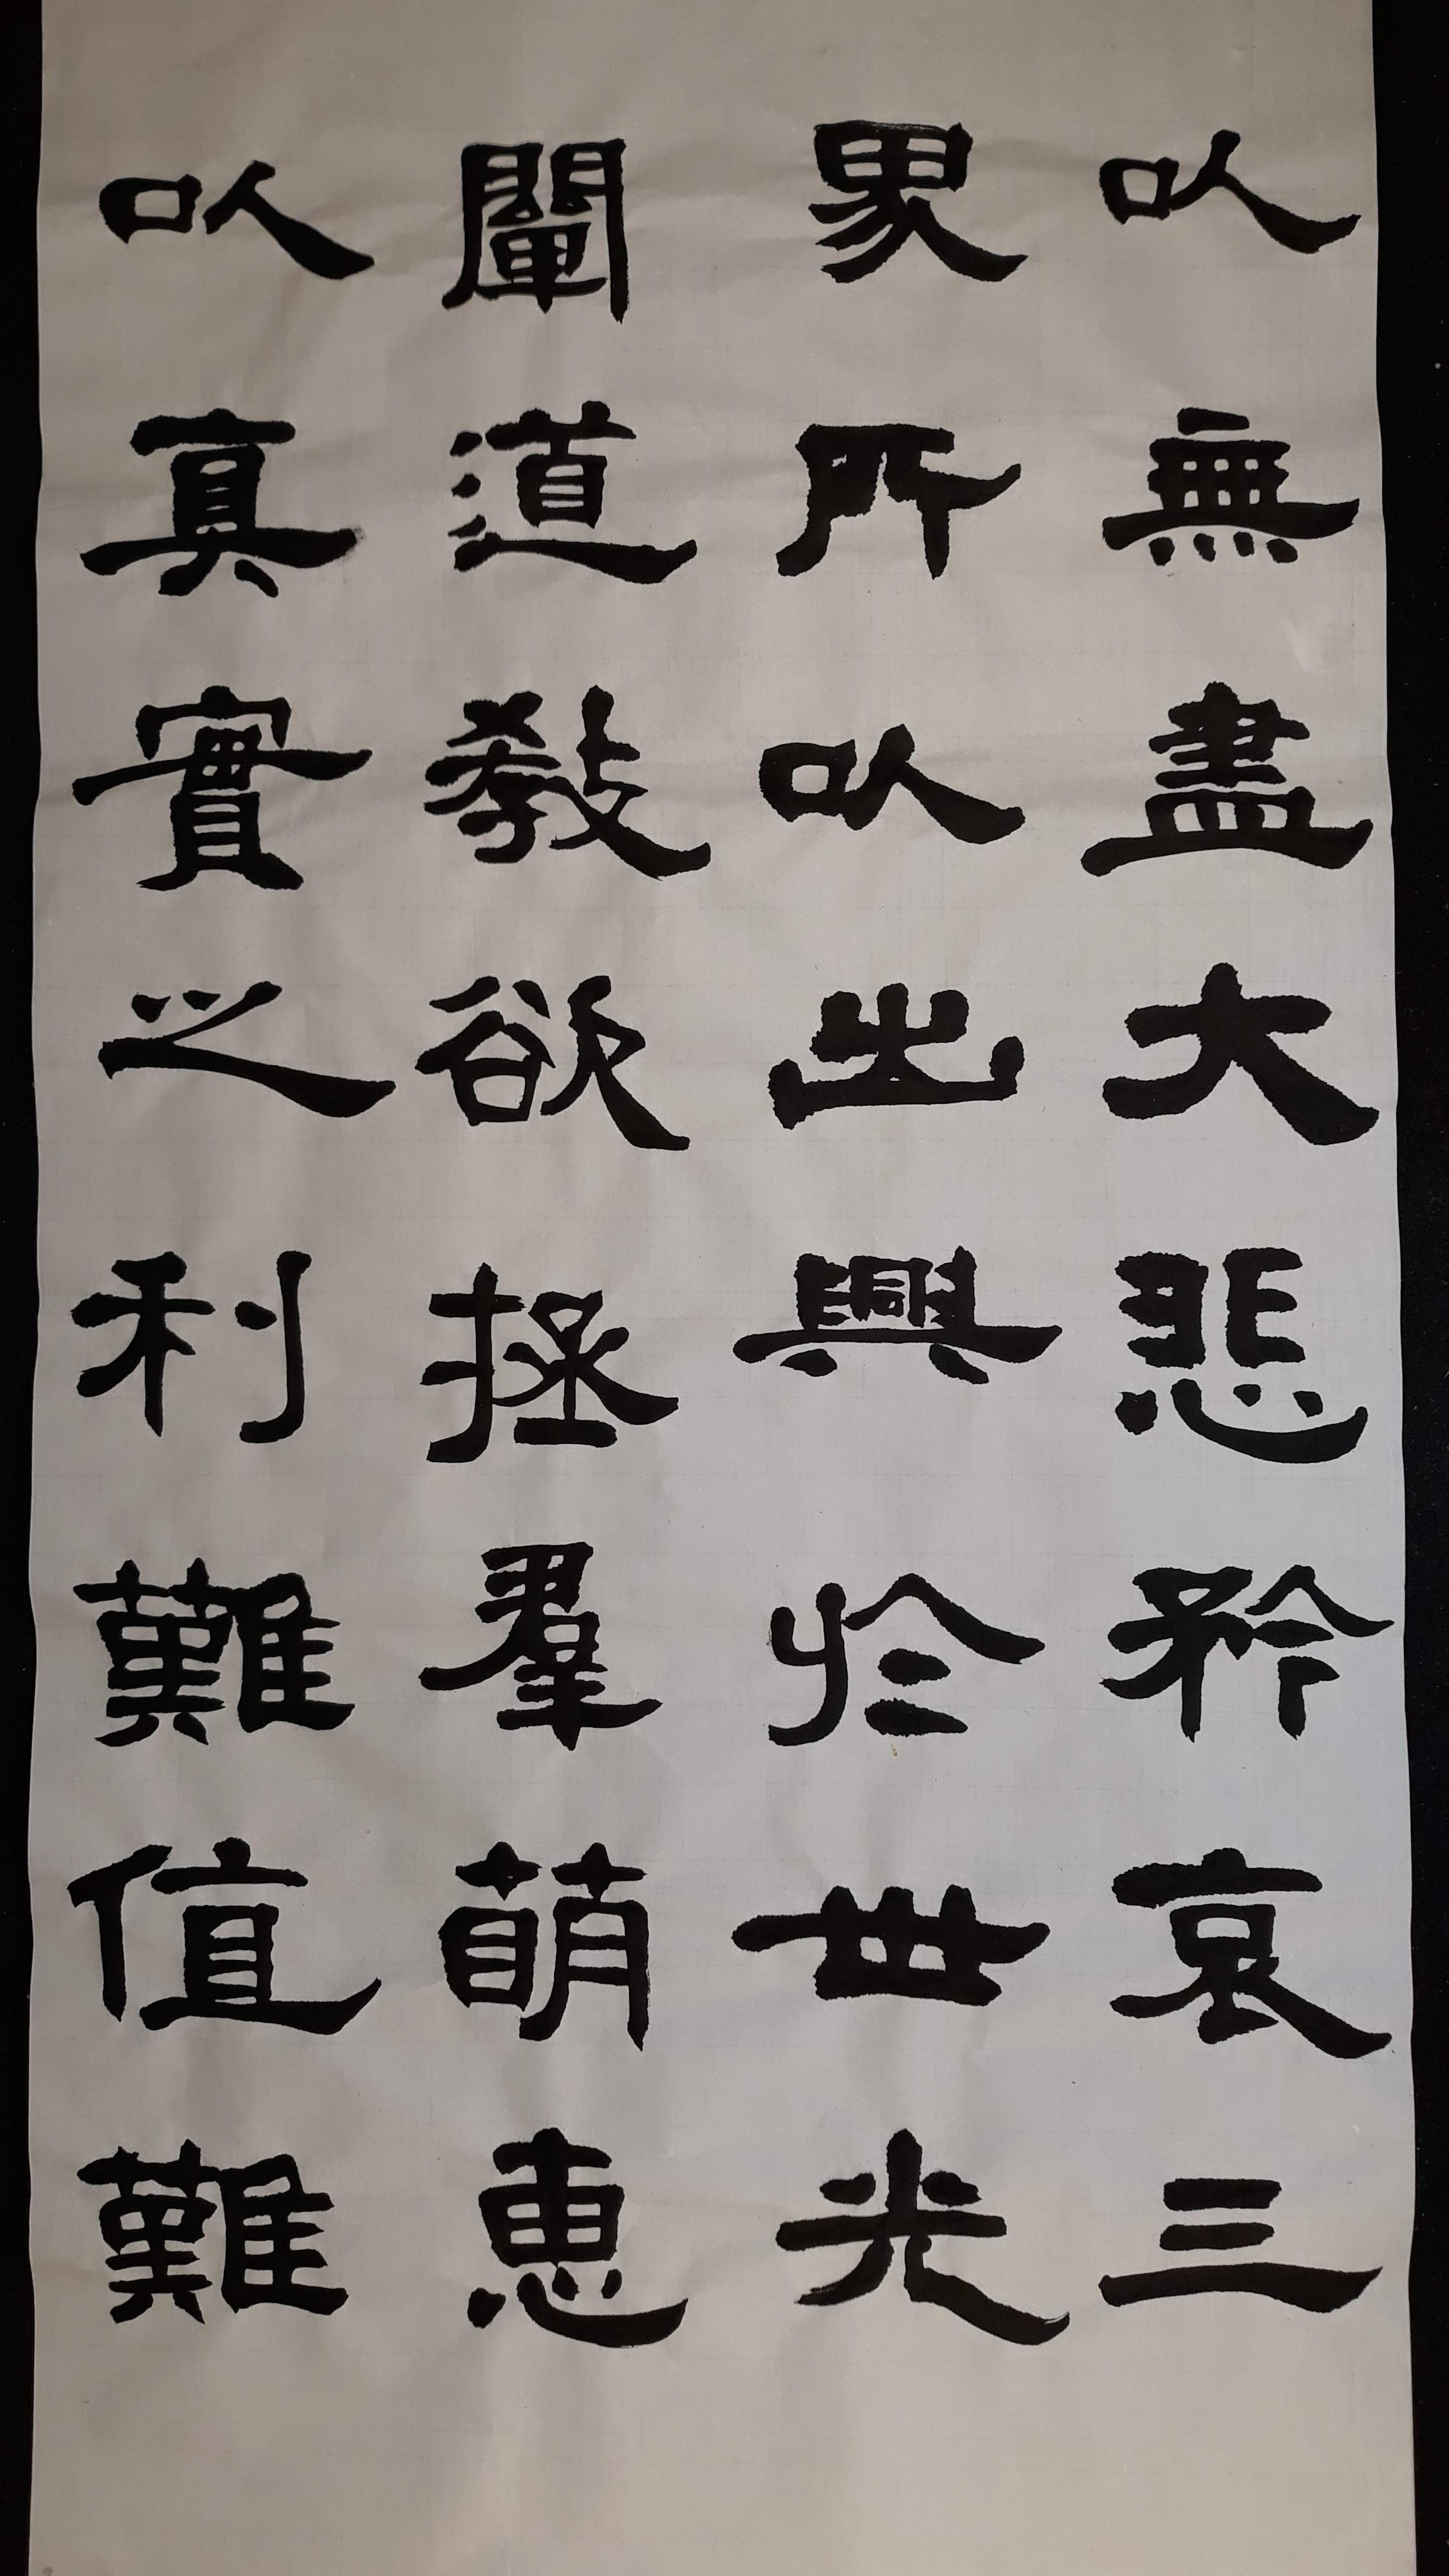 以無盡大悲矜哀三
界所以出興於世光
闡道教欲拯羣萌惠
以真實之利難值難